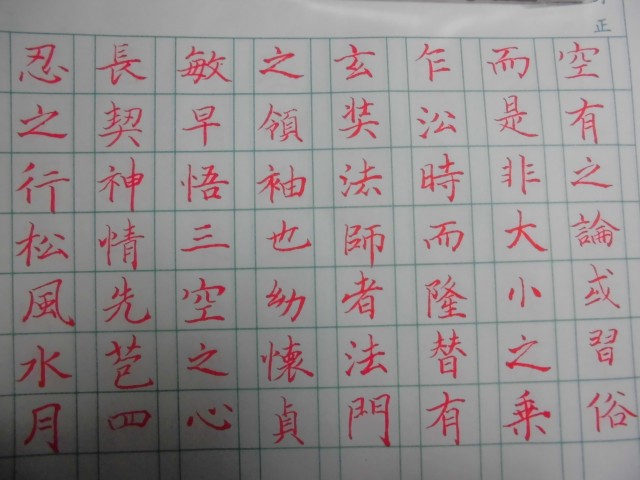 空有之論或習俗
而是非大小之乗
乍沿時而隆替有
玄奘法師者法門
之領袖也幼懷貞
敏早悟三空之心
長契神情先苞四
忍之行松風水月
正